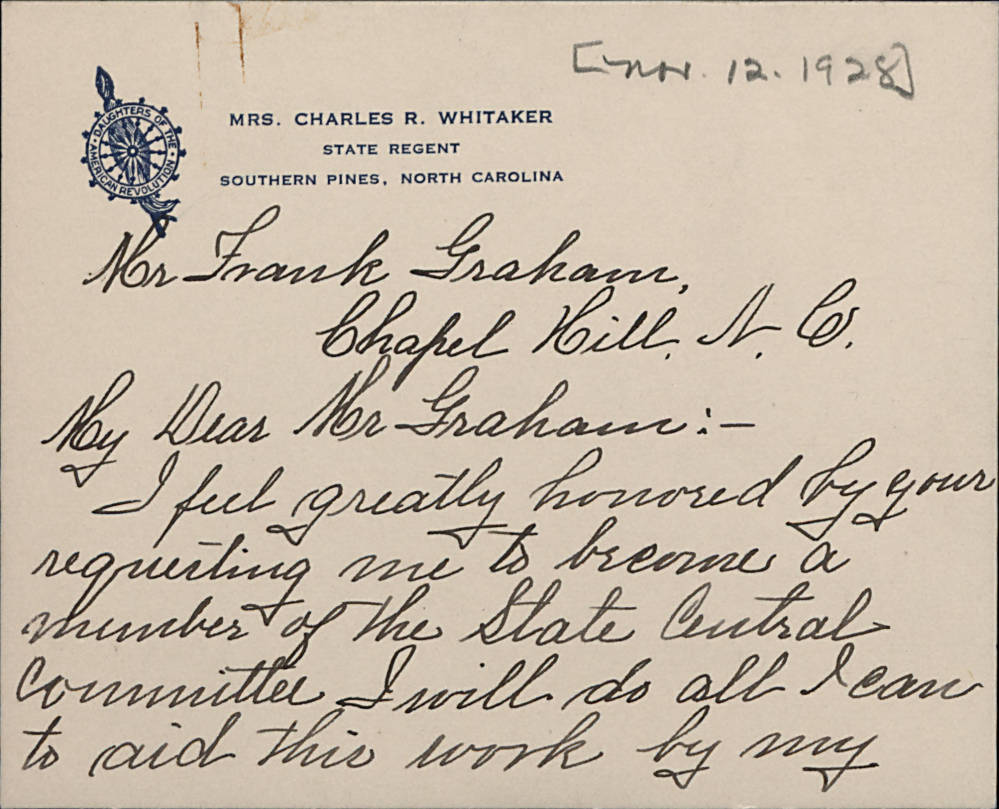 [Nov. 12. 1928]
DAUGHTERS OF THE AMERICAN REVOLUTION
MRS. CHARLES R. WHITAKER
STATE REGENT
SOUTHERN PINES, NORTH CAROLINA
Mr Frank Graham,
Chapel Hill, N. C.
My Dear Mr Graham:-
I feel greatly honored by your
requesting me to become a
member of the State Central
Committee I will do all I can
to aid this work by my